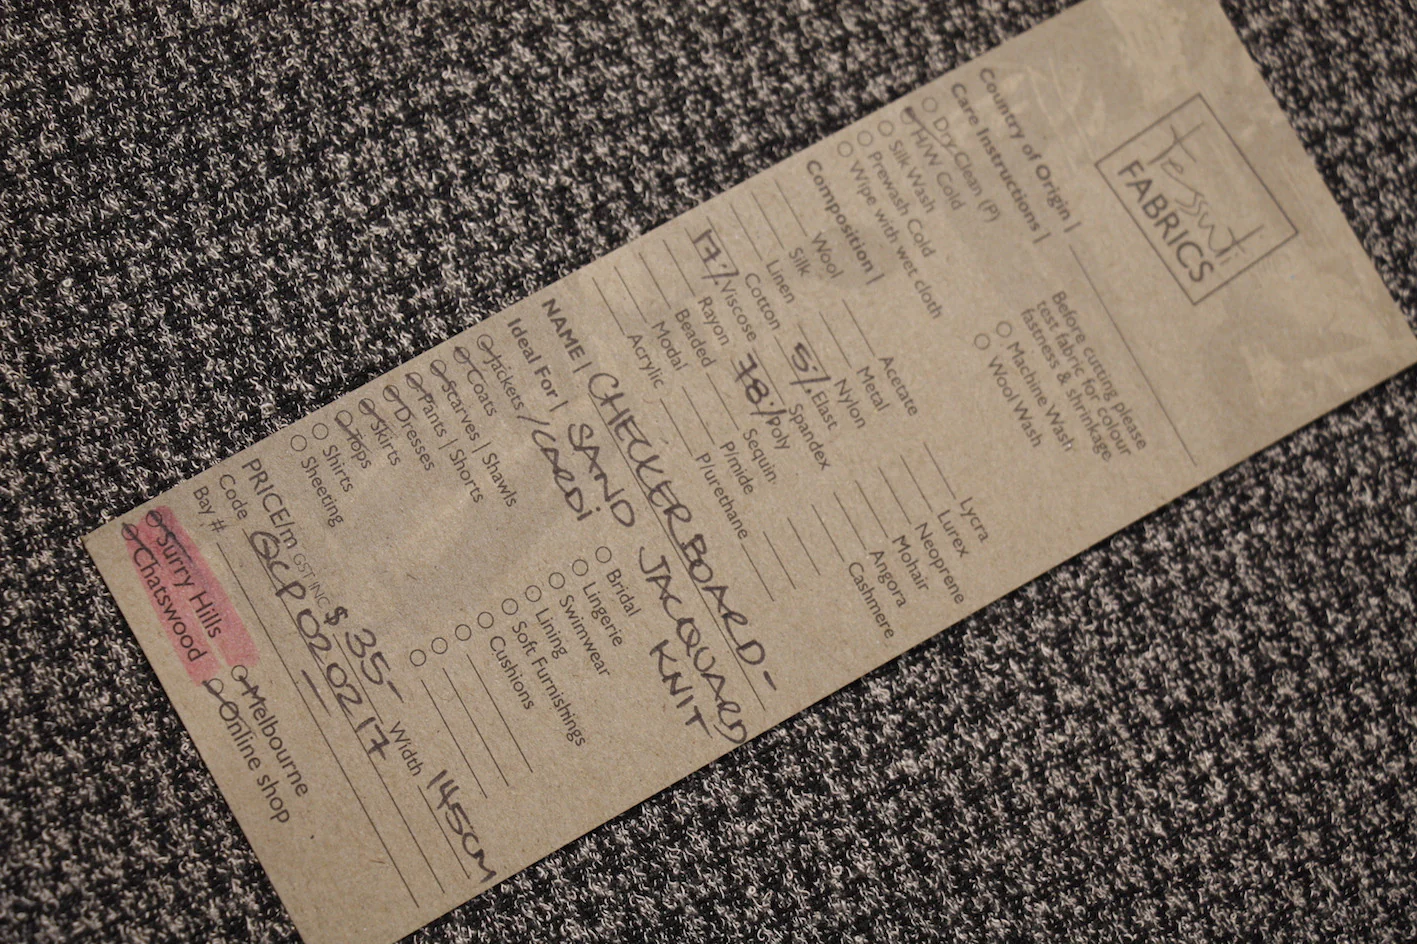 tessuti
FABRICS
Country of Origin |
Care Instructions |
Before cutting please
test fabric for colour
fastness & shrinkage.
Dry Clean (P)
H/W Cold
Silk Wash
Prewash Cold
Wipe with wet cloth
Machine Wash
Wool Wash
Composition |
Wool Acetate Lycra
Silk Metal Lurex
Linen Nylon Neoprene
Cotton 5% Elast Mohair
17% Viscose Spandex Angora
Rayon 78% Poly Cashmere
Beaded Sequin
Modal P/mide
Acrylic P/urethane
NAME | CHECKERBOARD-
SAND JACQUARD
KNIT
Ideal For |
Jackets / CARDI
Coats
Scarves | Shawls
Pants | Shorts
Dresses
Skirts
Tops
Shirts
Sheeting
Bridal
Lingerie
Swimwear
Lining
Soft Furnishings
Cushions
PRICE/m GST INC $ 35- Width 145CM
Code GCP020217
Bay #
Surry Hills Melbourne
Chatswood Online shop